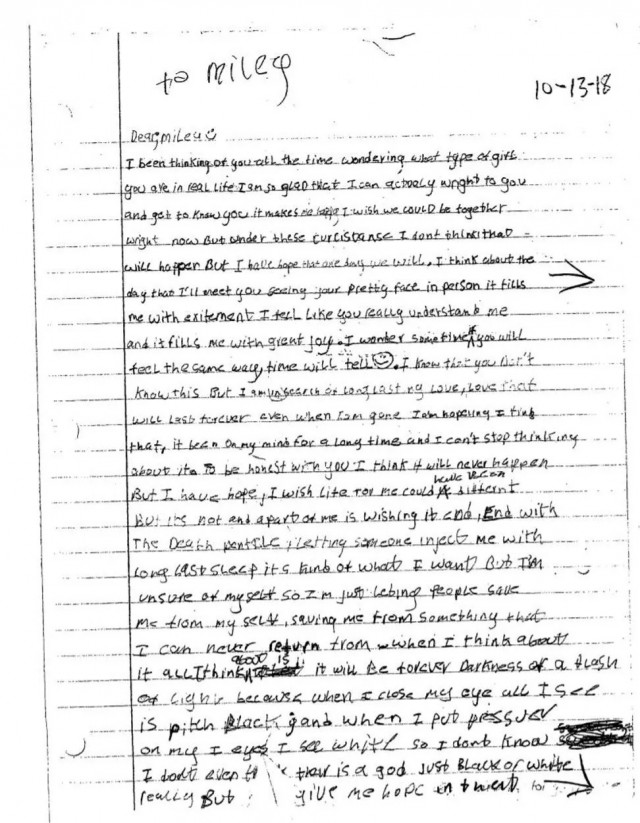 to miley
10-13-18
Dear, miley
I been thinking of you all the time wondering what type of girl
you are in real life I am so glad that I can actualy wright to you
and get to know you it makes me happy I wish we could be together
wright now But under these curcistanse I dont think that
will happen But I have hope that one day we will. I think about the
day that I'll meet you seeing your pretty face in person it fills
me with exitement I feel like you really understand me
and it fills me with great joy. I wonder sometime if you will
feel the same way, time will tell. I know that you don't
know this But I am in search of long lasting love, love that
will last forever even when I am gone I am hopeing I find
that, it been on my mind for a long time and I can't stop thinking
about it. To be honest with you I think it will never happen
But I have hope, I wish life for me could have been different
But its not and apart of me is wishing it end, End with
The Death pentile, letting someone inject me with
long last sleep its kind of what I want But I'm
unsure of my self so I'm just letting people save
me from my self, saving me from something that
I can never return from when I think about
it all I think about is it will Be forever Darkness of a flash
of light because when I close my eye all I see
is pitch Black, and when I put pressuer
on my eyes I see white so I dont know
I dont even think their is a god just Black or white
really But give me hope in